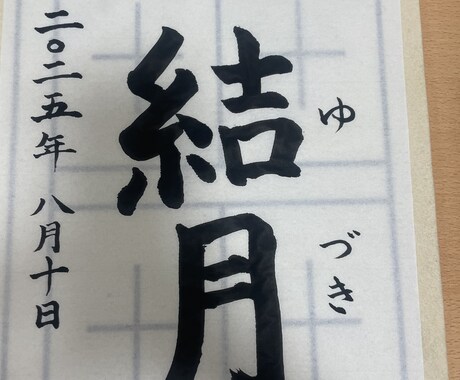 結月
ゆづき
二〇二五年 八月十日